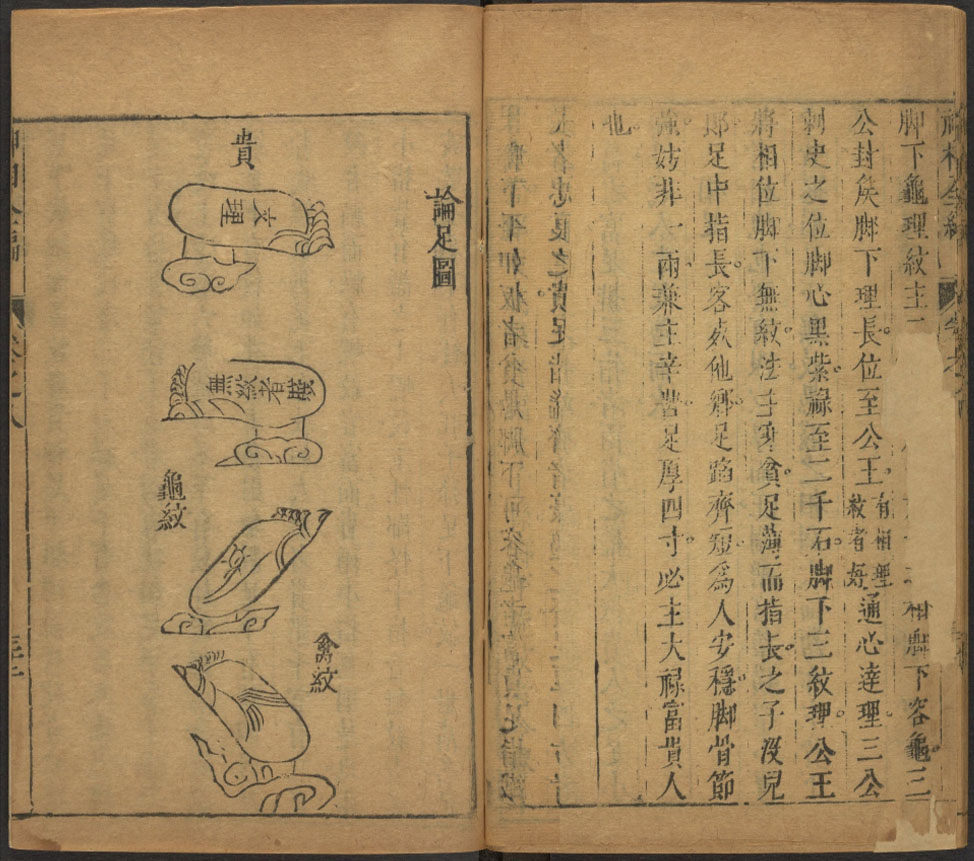 脚下龜理紋主二 相脚下容龜三
公封矦脚下理長位至公王有相理紋者好通心達理三公
刺史之位脚心黑紫祿至二千石脚下三紋理公王
將相位脚下無紋法主寒貧足薄而指長之子沒兒
郎足中指長客死他鄉足蹈齊短為人安穩脚骨節
強妨非一兩兼主辛苦足厚四寸必主大祿富貴人
也
論足圖
貴
文理
無紋者賤
龜紋
禽紋